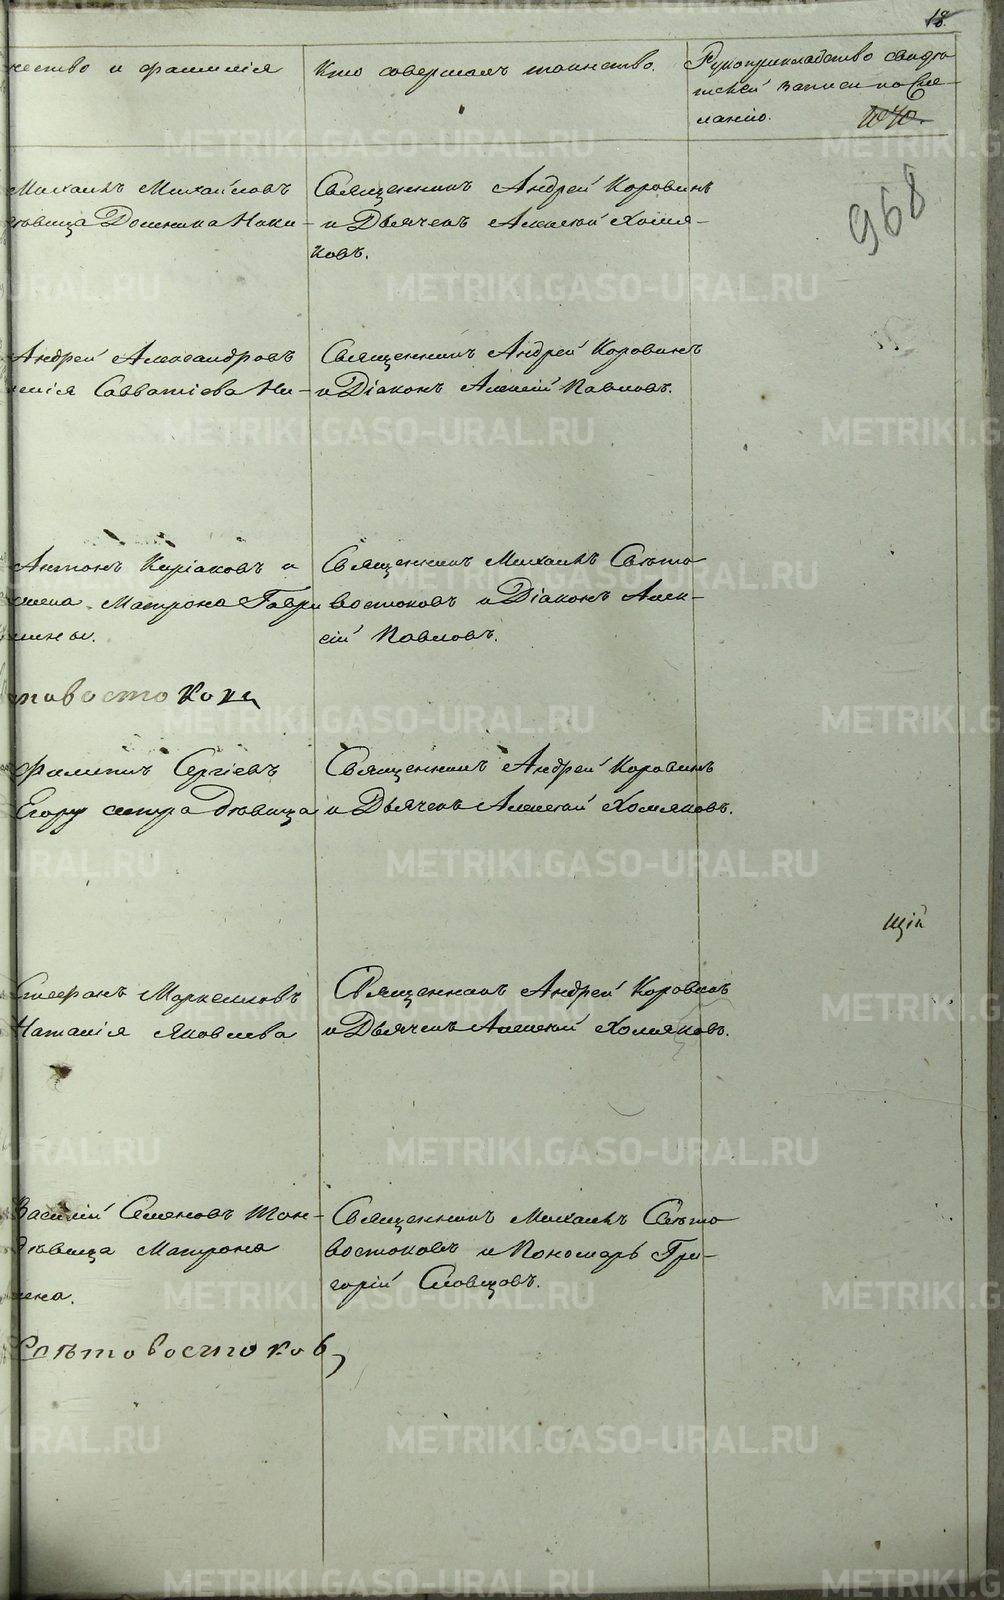 18.
чество и фамилія
Кто совершалъ таинство.
Рукоприкладство свидѣ
записи по Же
ланію.
968
Михаилъ Михайловъ
дѣвица Домника Ники-
Священникъ Андрей Коровинъ
и Дьячекъ Алексѣй Холмя-
ковъ.
Андрей Александровъ
Савватіева Ни-
Священникъ Андрей Коровинъ
и Діаконъ Алексій Павловъ.
Антонъ Киріаковъ и
Матрона Гаври
Священникъ Михаилъ Свѣто
востоковъ и Діаконъ Алек-
сій Павловъ.
товостоковъ
Филиппъ Сергіевъ
Егору сестра дѣвица
Священникъ Андрей Коровинъ
и Дьячекъ Алексѣй Холмяковъ.
щій
Стефанъ Маркелловъ
Наталія Яковлева
Священникъ Андрей Коровинъ
и Дьячекъ Алексѣй Холмяковъ.
Василій Семеновъ Тон-
дѣвица Матрона
Священникъ Михаилъ Свѣто
востоковъ и Пономарь Гри-
горій Словцовъ.
Свѣтовостоковъ
METRIKI.GASO-URAL.RU